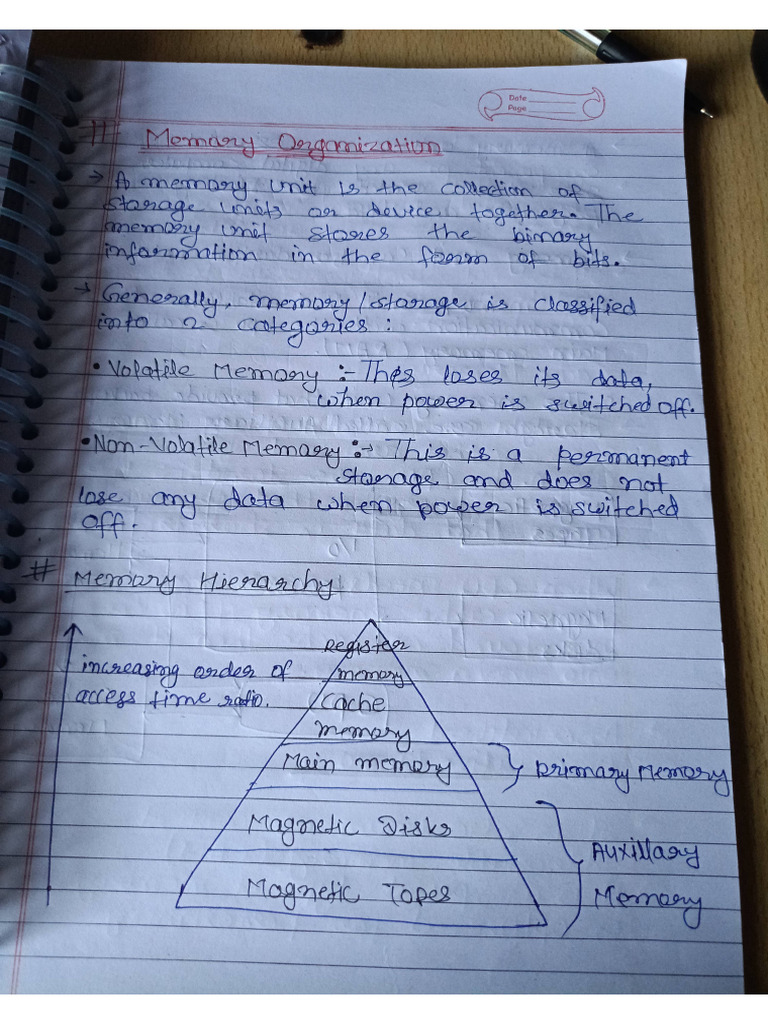 Date
Page
# Memory Organization
→ A memory unit is the collection of
storage units or device together. The
memory unit stores the binary
information in the form of bits.
→ Generally, memory/storage is classified
into 2 categories:
• Volatile Memory :- This loses its data,
when power is switched off.
• Non-Volatile Memory :- This is a permanent
storage and does not
lose any data when power is switched
off.
# Memory Hierarchy
increasing order of
access time ratio.
Register
memory
Cache
memory
Main memory
Primary Memory
Magnetic Disks
Magnetic Tapes
Auxillary
Memory